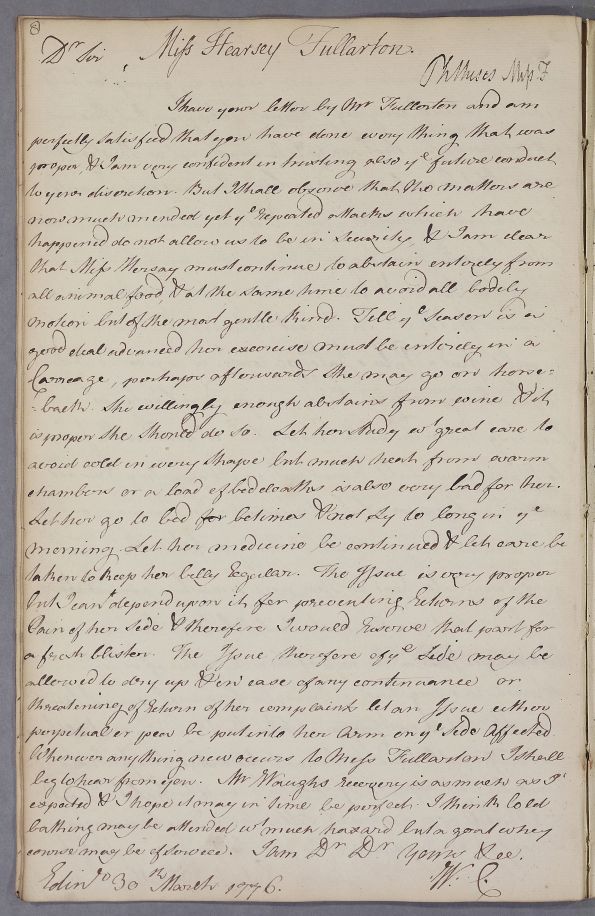 8
Dr Sir Miss Hearsey Fullarton.
Phthisis Miss F
I have your letter by Mr Fullorton and am
perfectly satisfied that you have done every thing that was
proper, & I am very confident in trusting also ye future conduct
to your discretion. But I shall observe that tho matters are
now much mended yet ye repeated attacks which have
happened do not allow us to be in Security, & I am clear
that Miss Hersay must continue to abstain entirely from
all animal food, & at the same time to avoid all bodily
motion but of the most gentle kind. Till ye Season is a
good deal advanced her exercise must be entirely in a
Carreage, perhaps afterwards she may go on horse=
=back. She willingly enough abstains from wine & it
is proper she should do so. Let her study wt great care to
avoid cold in every shape but much heat from warm
chambers or a load of bedcloaths is also very bad for her.
Let her go to bed for betimes & not ly to long in ye
morning. Let her medicine be continued & let care be
taken to keep her belly regular. The Issue is very proper
but I cant depend upon it for preventing returns of the
Pain of her Side & therefore I would reserve that part for
a fresh blister. The Issue therefore of ye Side may be
allowed to dry up & in case of any continuance or
threatening of return of her complaints let an Issue either
perpetual or pear be put into her arm on ye Side affected
Whenever any thing new occurs to Miss Fullarton I shall
beg to hear from you. Mr Waughs recovery is as much as I
expected & I hope it may in time be perfect. I think Cold
bathing may be attended wt much hazard but a goat whey
course may be of service. I am Dr Dr yours &ce.
Edinr 30th March 1776. W. C.